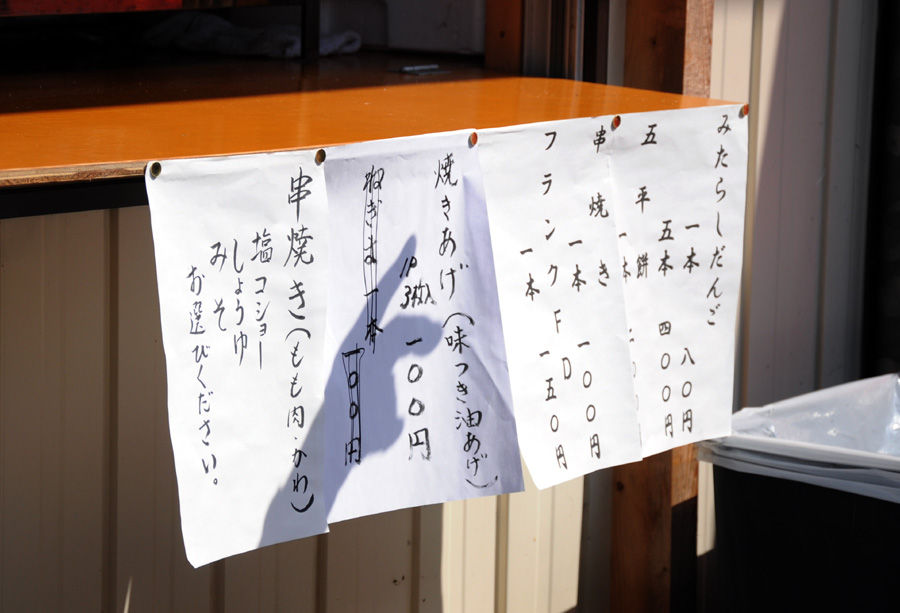 みたらしだんご
一本 八〇円
五本 四〇〇円
五平餅
一本
串焼き
一本 一〇〇円
フランクFD
一本 一五〇円
焼きあげ(味つき油あげ)
1P 3枚入 一〇〇円
ねぎま 一本 一〇〇円
串焼き(もも肉・かわ)
塩コショー
しょうゆ
みそ
お選びください。